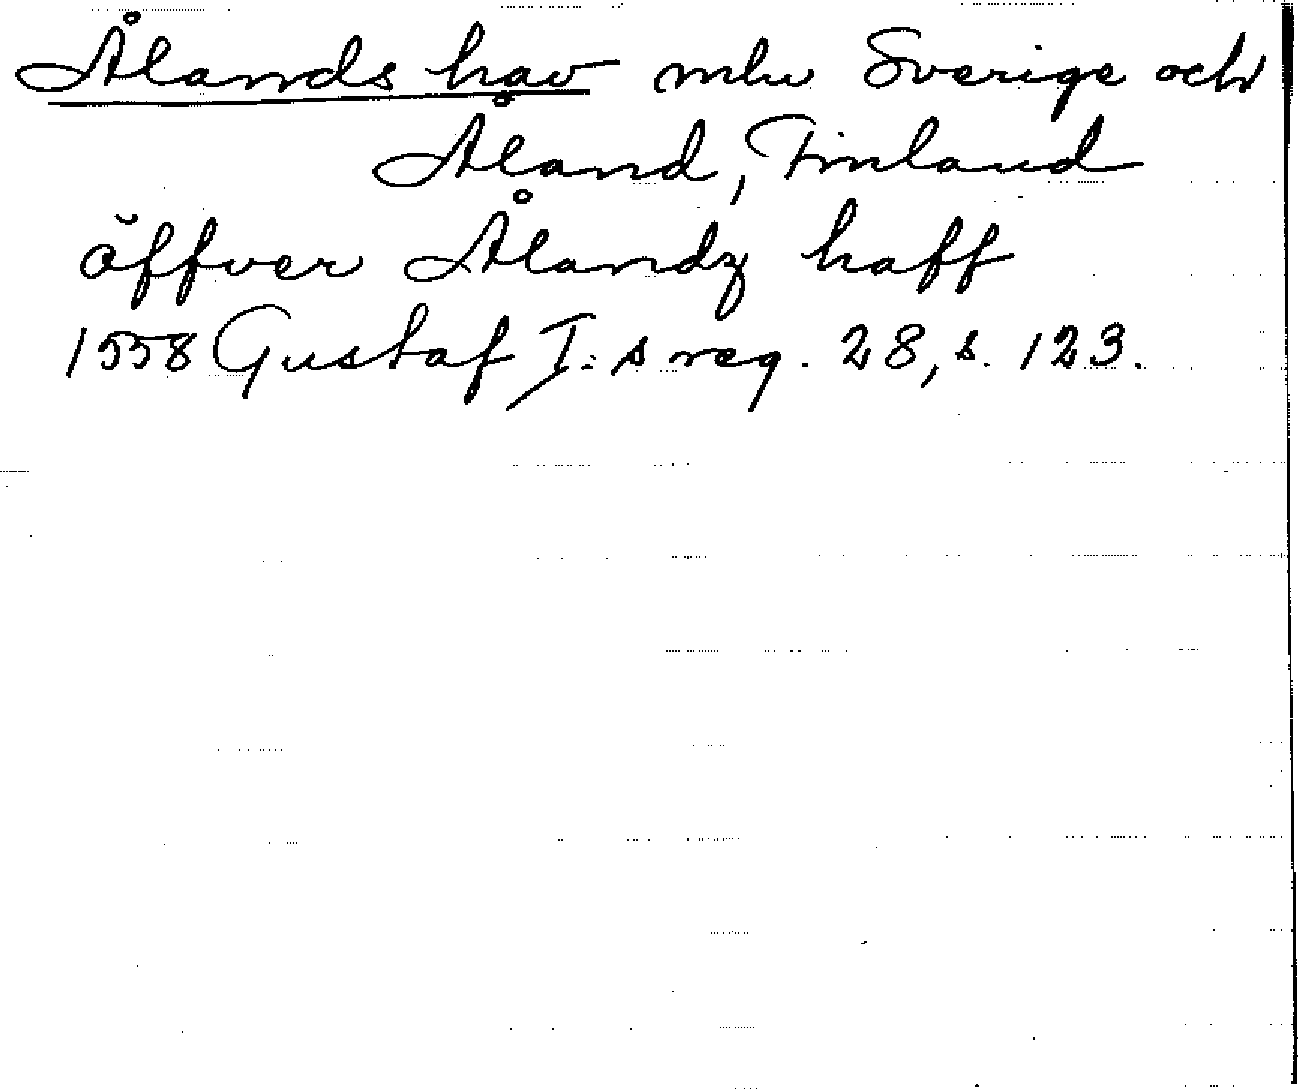 Ålands hav mlw Sverige och
Åland, Finland
öffver Ålandz haff
1558 Gustaf I:s reg. 28, s. 123.